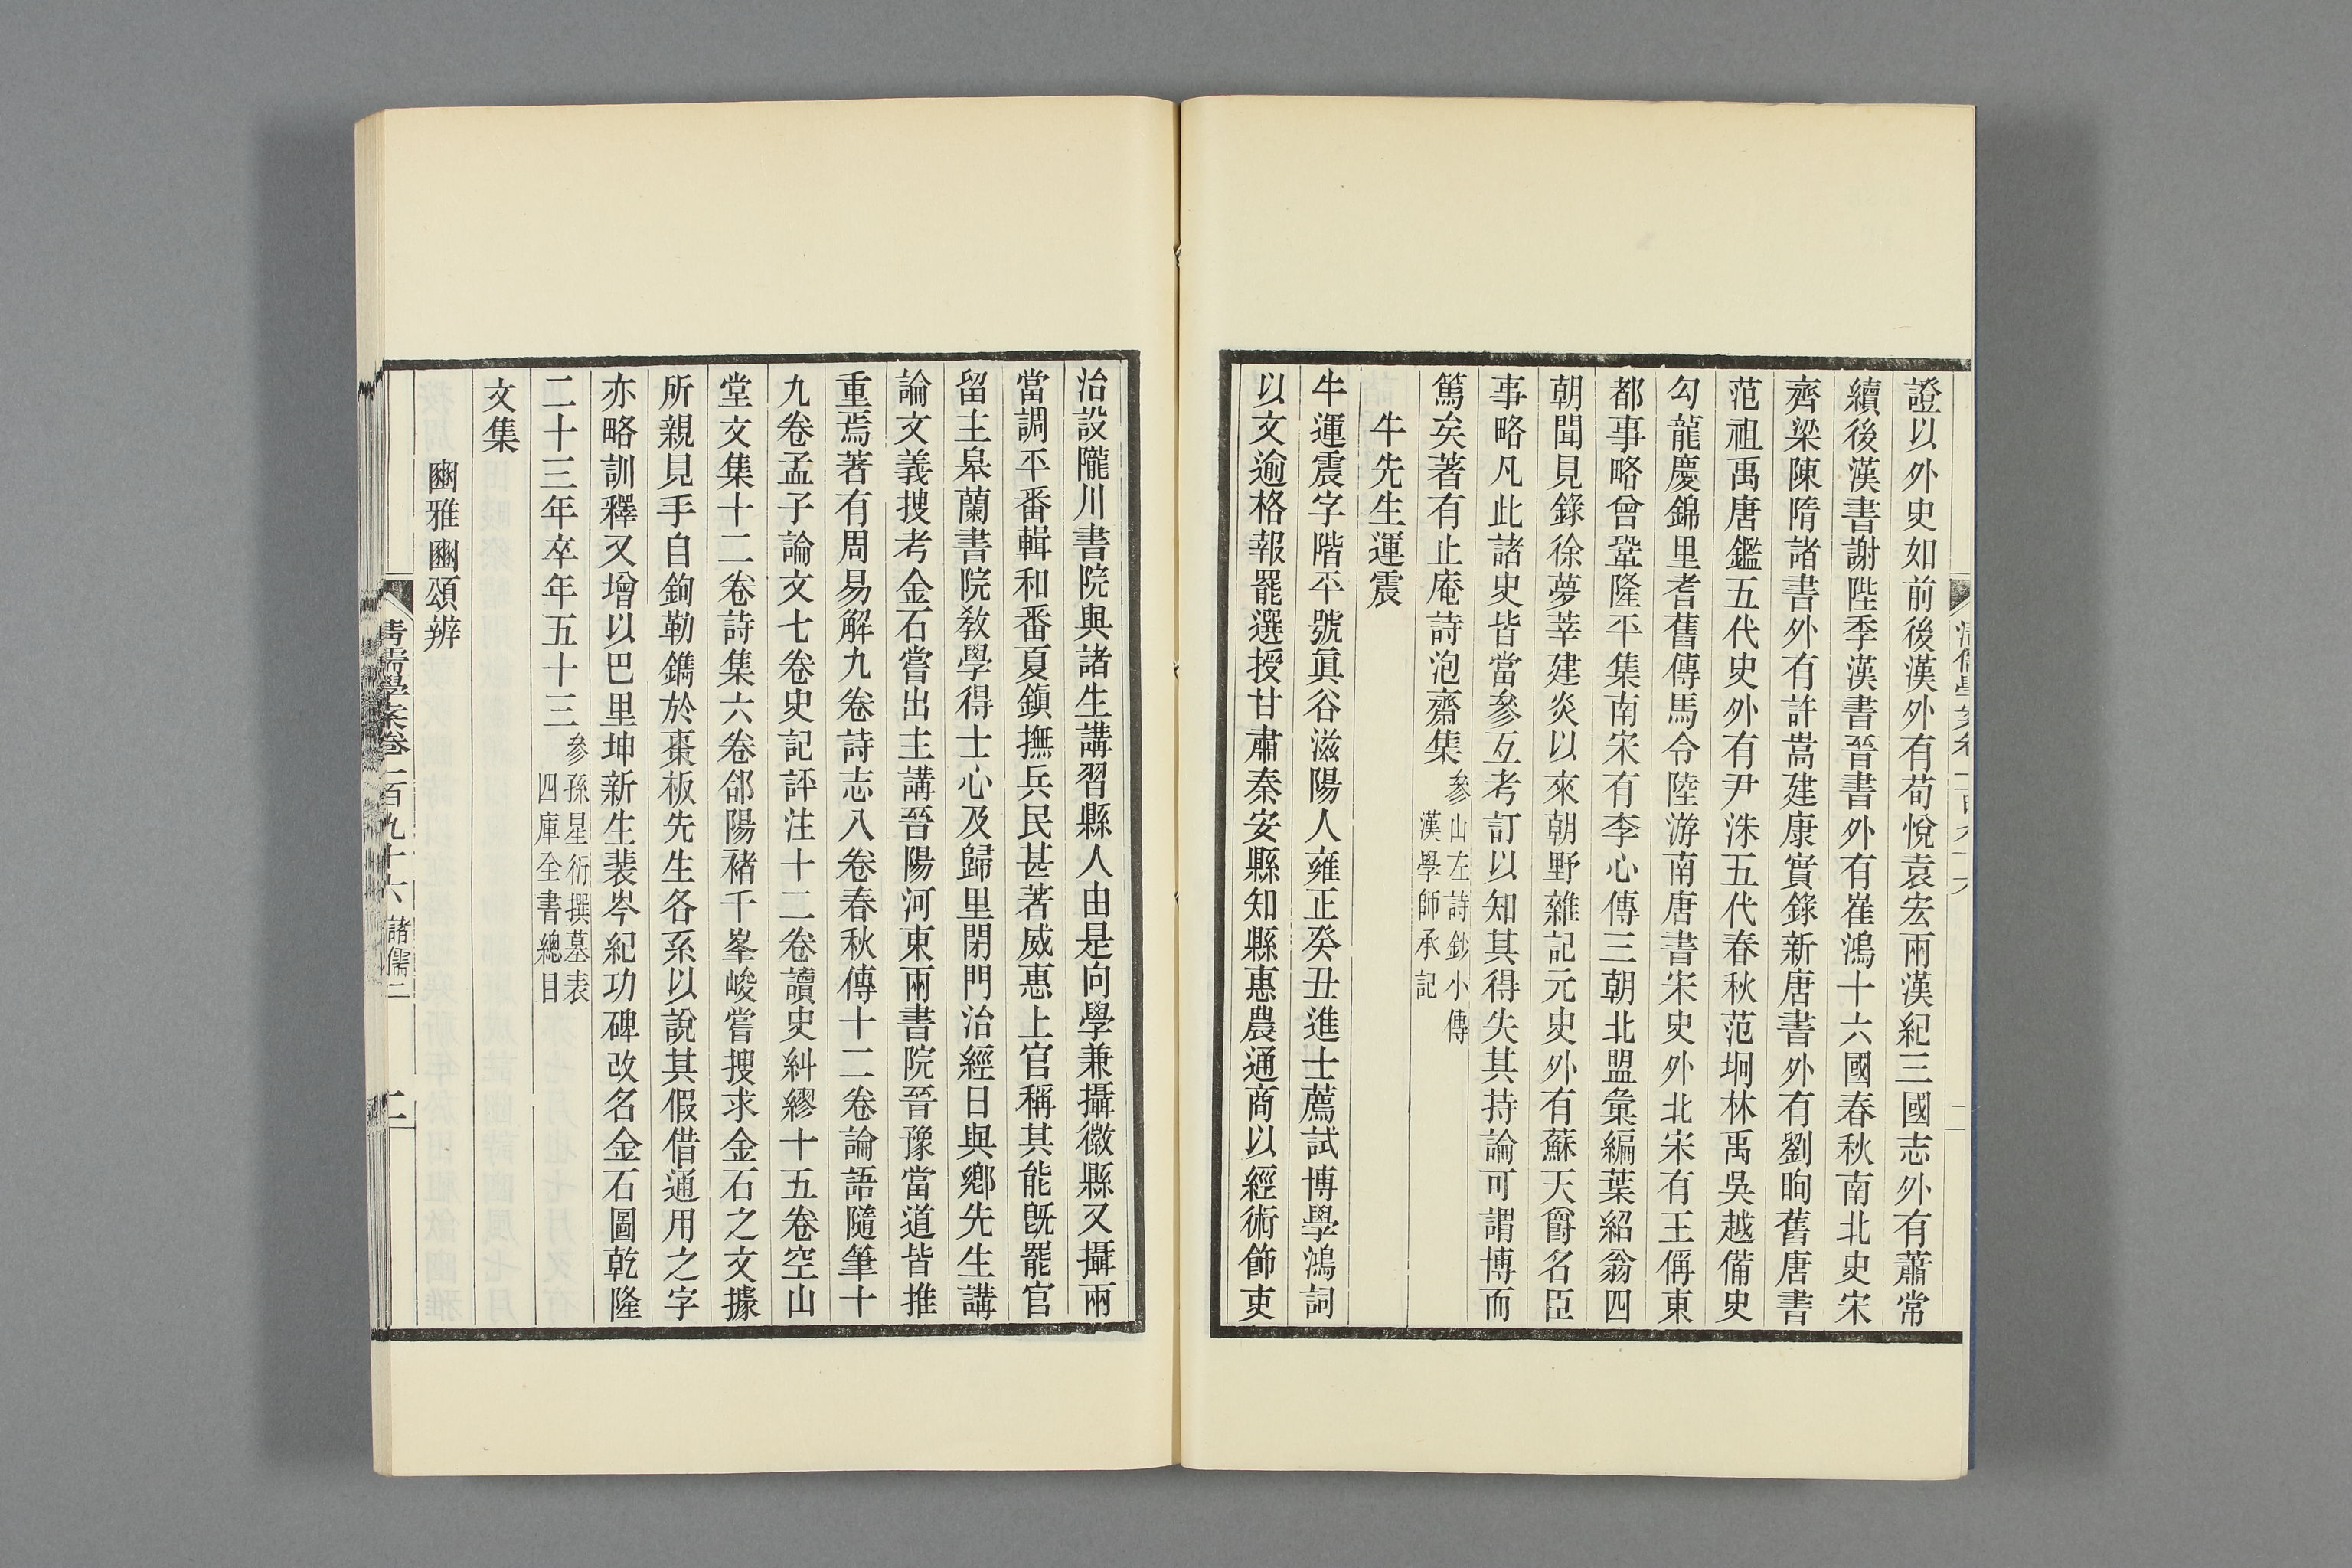 證以外史如前後漢外有荀悅袁宏兩漢紀三國志外有蕭常
續後漢書謝陛季漢書晉書外有崔鴻十六國春秋南北史宋
齊梁陳隋諸書外有許嵩建康實錄新唐書外有劉昫舊唐書
范祖禹唐鑑五代史外有尹洙五代春秋范坰林禹吳越備史
勾龍慶錦里耆舊傳馬令陸游南唐書宋史外北宋有王偁東
都事略曾鞏隆平集南宋有李心傳三朝北盟彙編葉紹翁四
朝聞見錄徐夢莘建炎以來朝野雜記元史外有蘇天爵名臣
事略凡此諸史皆當參互考訂以知其得失其持論可謂博而
篤矣著有止庵詩泡齋集參山左詩鈔小傳漢學師承記
牛先生運震
牛運震字階平號眞谷滋陽人雍正癸丑進士薦試博學鴻詞
以文逾格報罷選授甘肅秦安縣知縣惠農通商以經術飾吏
治設隴川書院與諸生講習縣人由是向學兼攝徽縣又攝兩
當調平番輯和番夏鎮撫兵民甚著威惠上官稱其能旣罷官
留主皋蘭書院敎學得士心及歸里閉門治經日與鄉先生講
論文義搜考金石嘗出主講晉陽河東兩書院晉豫當道皆推
重焉著有周易解九卷詩志八卷春秋傳十二卷論語隨筆十
九卷孟子論文七卷史記評注十二卷讀史糾繆十五卷空山
堂文集十二卷詩集六卷郃陽褚千峯峻嘗搜求金石之文據
所親見手自鉤勒鐫於棗板先生各系以說其假借通用之字
亦略訓釋又增以巴里坤新生裴岑紀功碑改名金石圖乾隆
二十三年卒年五十三參孫星衍撰墓表四庫全書總目
文集
豳雅豳頌辨
清儒學案卷一百九十六 諸儒二
二